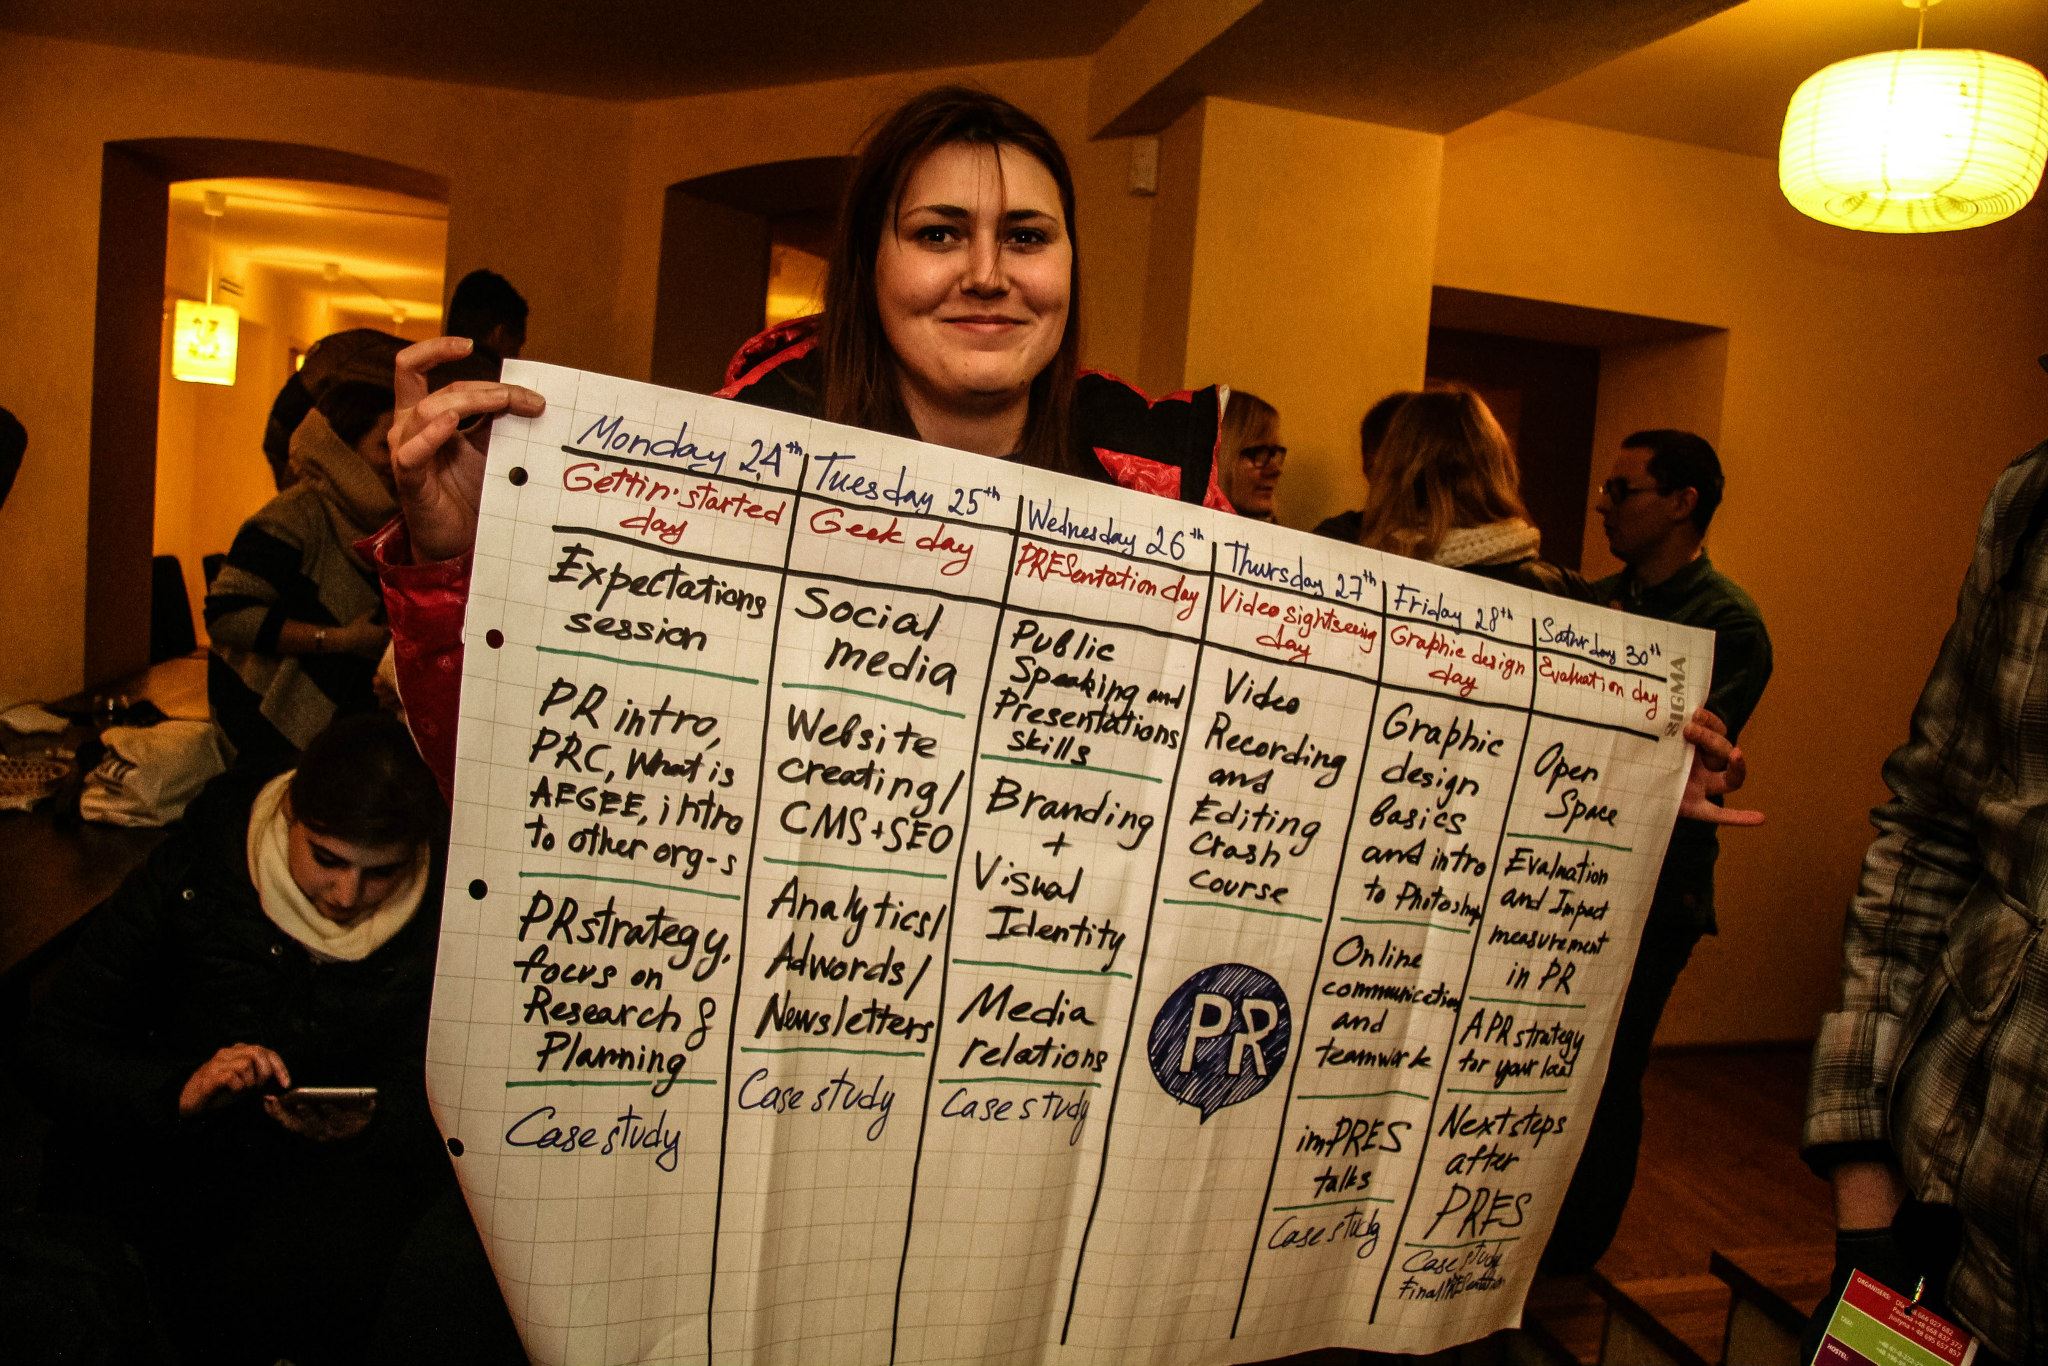 Monday 24th
Gettin' started
day
Expectations
session
PR intro,
PRC, What is
AEGEE, intro
to other org-s
PR strategy,
focus on
Research &
Planning
Case study
Tuesday 25th
Geek day
Social
media
Website
creating/
CMS+SEO
Analytics/
Adwords/
Newsletters
Case study
Wednesday 26th
PRESentation day
Public
Speaking and
Presentations
skills
Branding
+
Visual
Identity
Media
relations
Case study
Thursday 27th
Video sightseeing
day
Video
Recording
and
Editing
Crash
course
PR
Friday 28th
Graphic design
day
Graphic
design
basics
and intro
to Photoshop
Online
communication
and
teamwork
imPRES
talks
Case study
Saturday 30th
Evaluation day
Open
Space
Evaluation
and Impact
measurement
in PR
A PR strategy
for your local
Next steps
after
PRES
Case study
Final PRESentation
SIGMA
ORGANISERS:
Ola
Paulina +48 668 837 372
Justyna + 48 695 657 857
TAXI:
HOSTEL: